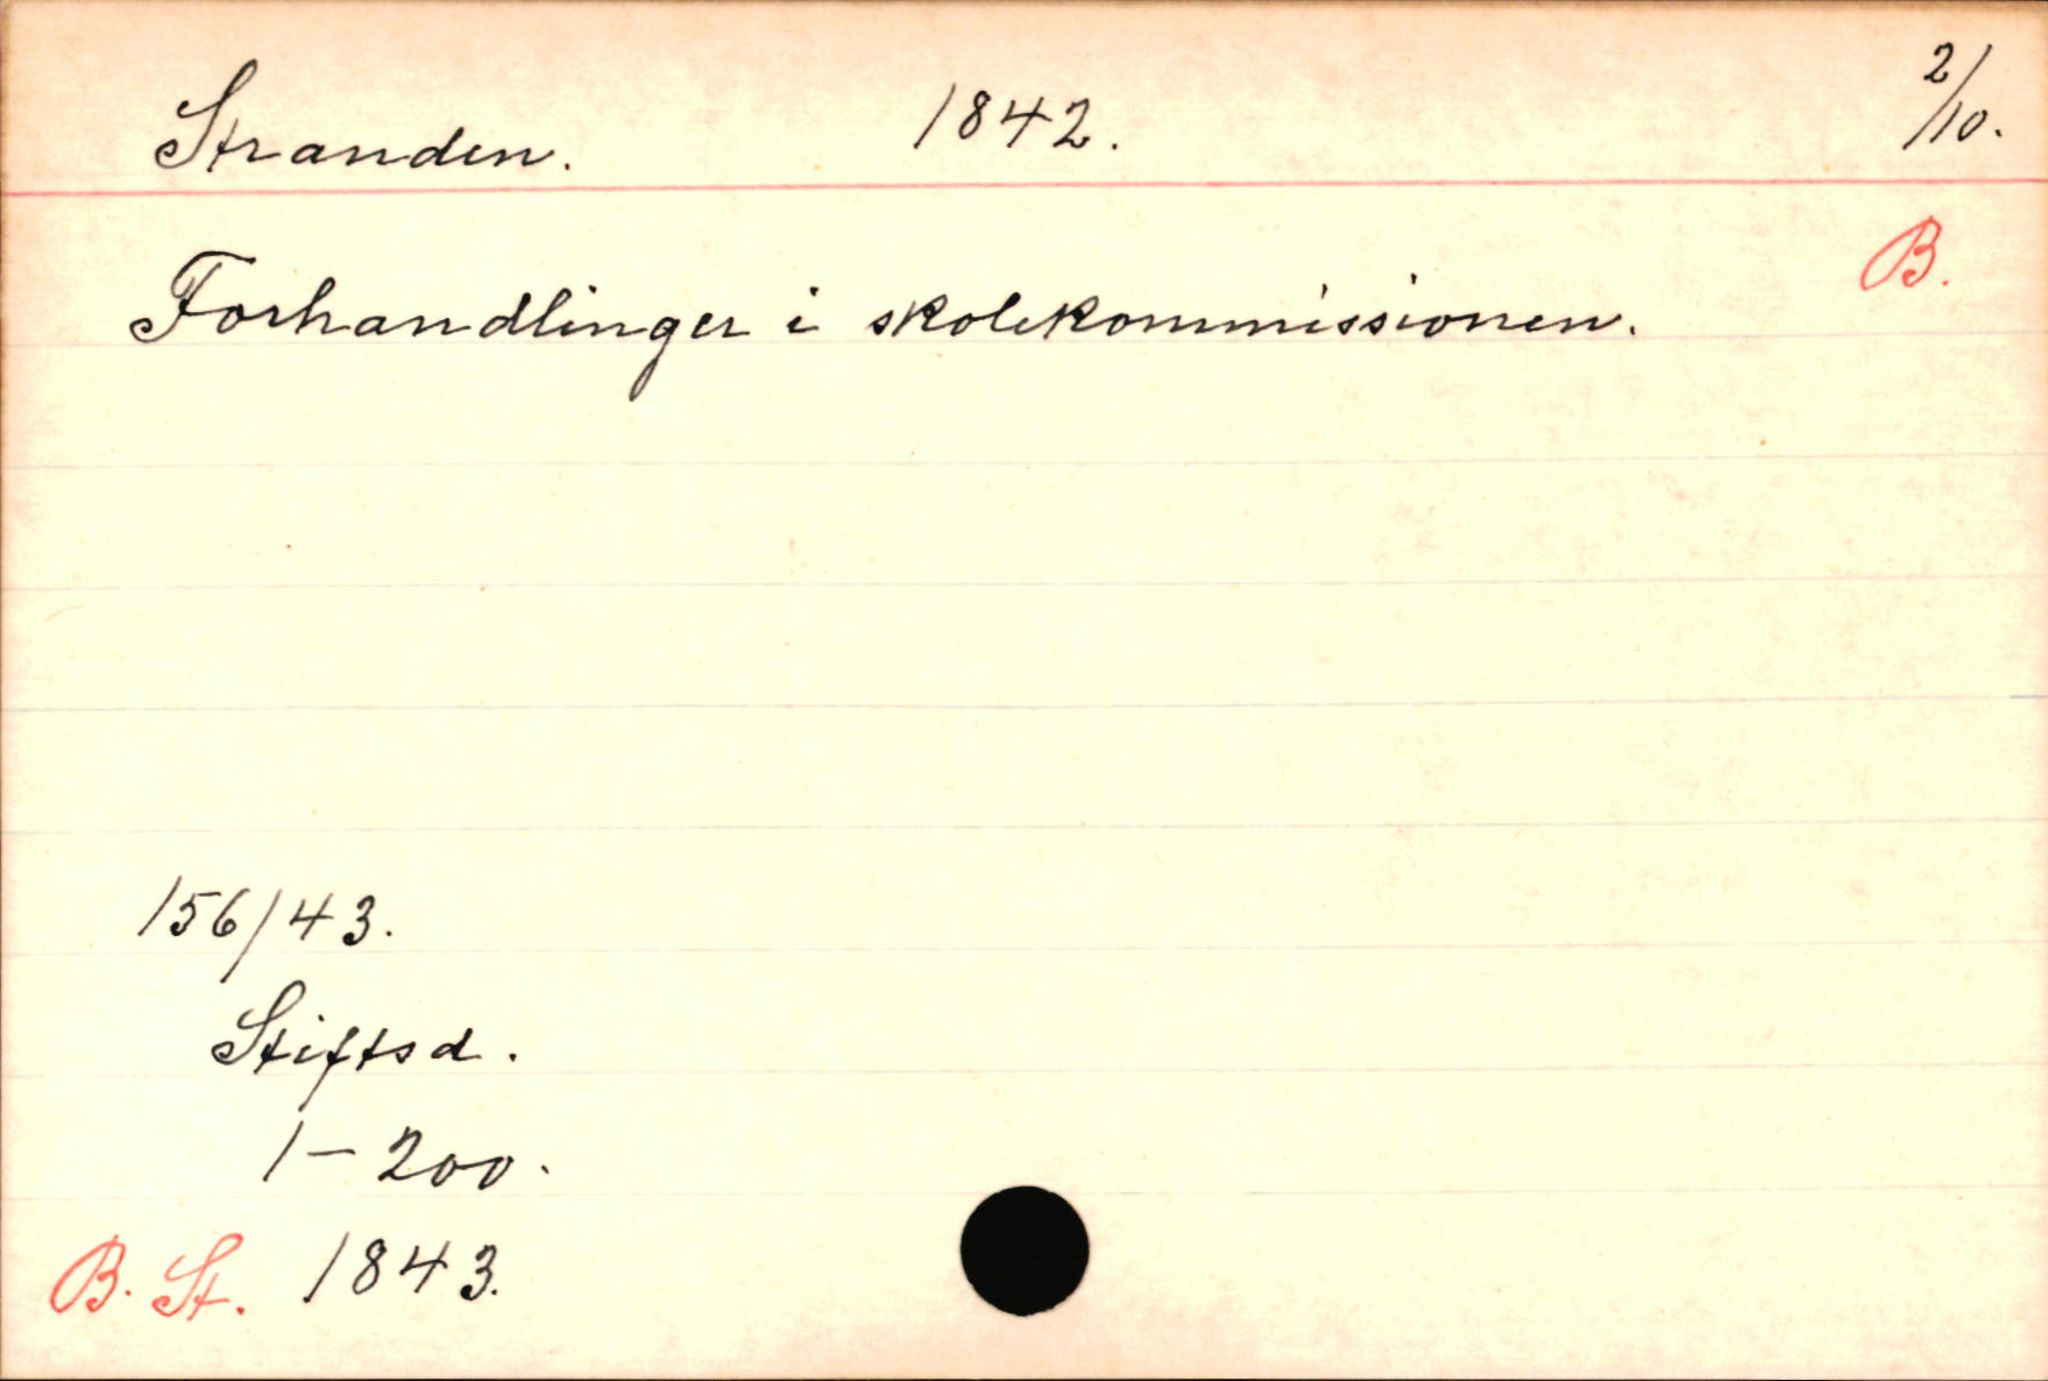 Stranden. 1842. 2/10.
B.
Forhandlinger i skolekommissionen.
156/43.
Stiftsd.
1-200.
B. St. 1843.